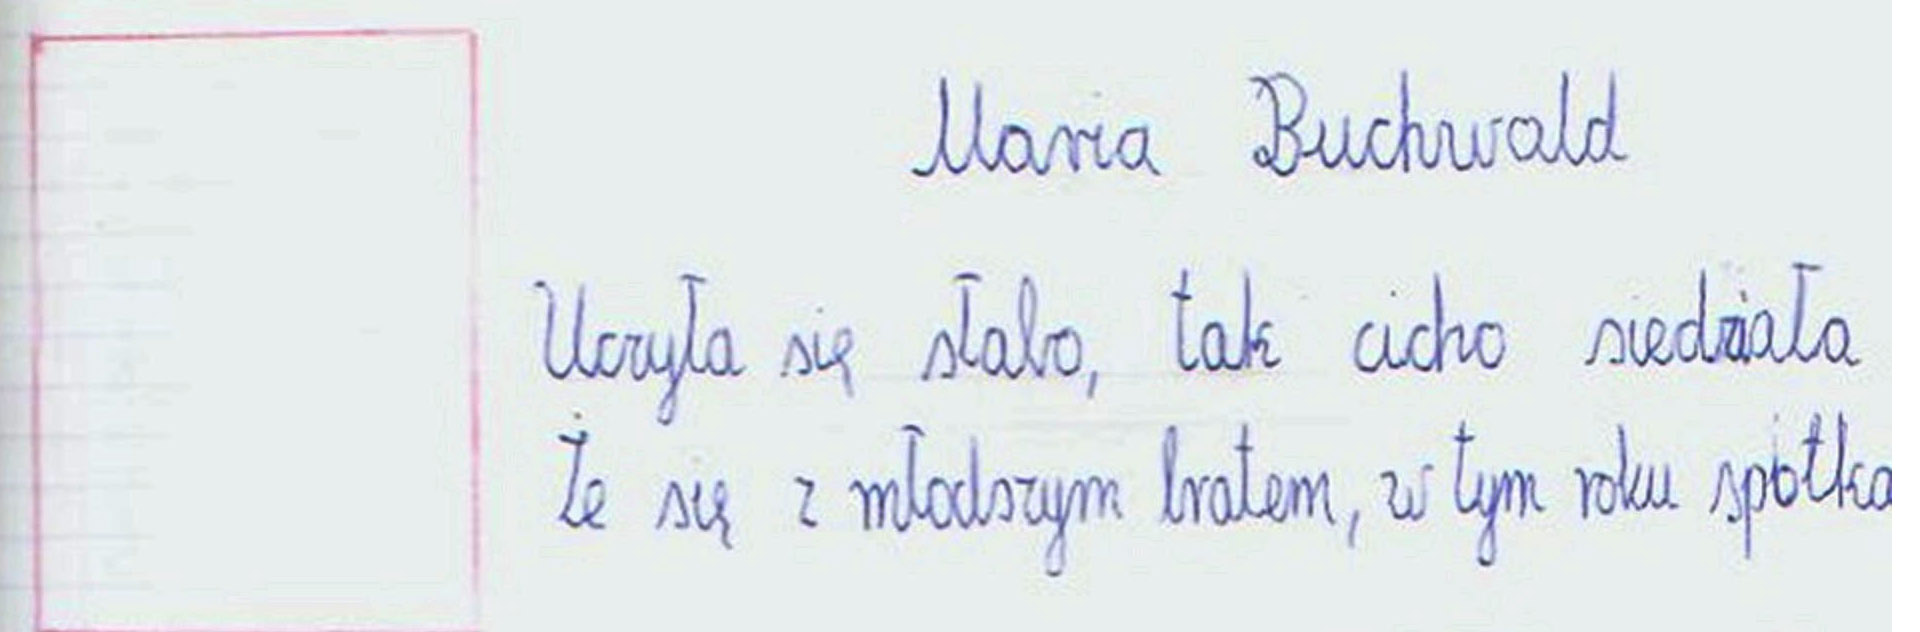 Maria Buchwald
Uczyła się słabo, tak cicho siedziała
Że się z młodszym bratem, w tym roku spotka